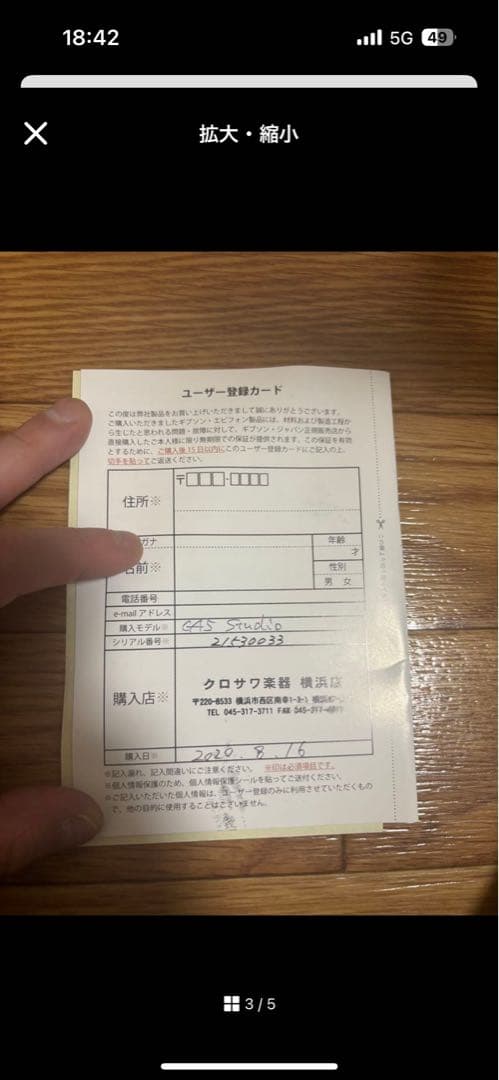 18:42
5G 49
拡大・縮小
ユーザー登録カード
この度は弊社製品をお買い上げいただきまして誠にありがとうございます。
ご購入いただきましたギブソン・エピフォン製品には、材料および製造工程か
ら生じたと思われる問題・故障に対して、ギブソン・ジャパン正規販売店から
直接購入したご本人様に限り無期限での保証が提供されます。この保証を有効
とするために、ご購入後15日以内にこのユーザー登録カードにご記入の上、
切手を貼ってご返送ください。
住所※
〒□□□-□□□□
ガナ
年齢
才
名前※
性別
男 女
電話番号
e-mail アドレス
購入モデル※ G45 Studio
シリアル番号※ 21530033
購入店※
クロサワ楽器 横浜店
〒220-8533 横浜市西区南幸1-3-1
TEL 045-317-3711 FAX 045-317-
購入日※ 2020.8.16
※記入漏れ、記入間違いにご注意ください。 ※印は必須項目です。
※個人情報保護のため、個人情報保護シールを貼ってご送付ください。
※ご記入いただいた個人情報は、ユーザー登録のみに利用させていただくもの
で、他の目的に使用することはございません。
3 / 5